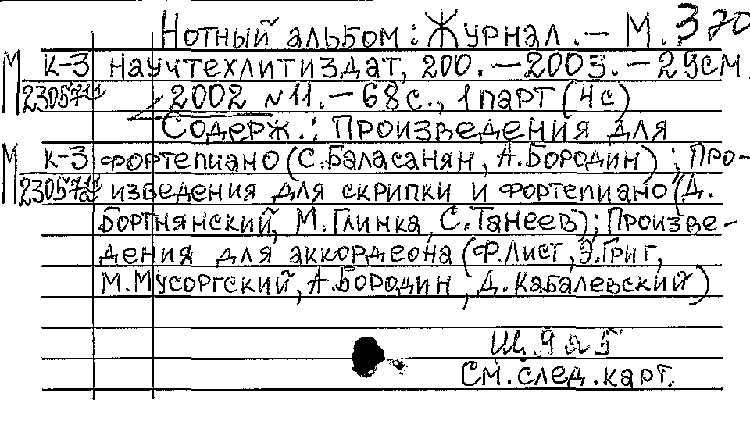 Нотный альбом: Журнал. – М.
М К-3 Научтехлитиздат, 200. – 2003. – 29см.
2002 №11. – 68 с., 1 парт (4с)
Содерж.: Произведения для
М К-3 фортепиано (С. Баласанян, А. Бородин); Про-
изведения для скрипки и фортепиано (Д.
Бортнянский, М. Глинка, С. Танеев); Произве-
дения для аккордеона (Ф. Лист, Э. Григ,
М. Мусоргский, А. Бородин, Д. Кабалевский)
Щ. 9 я 5
См. след. карт.